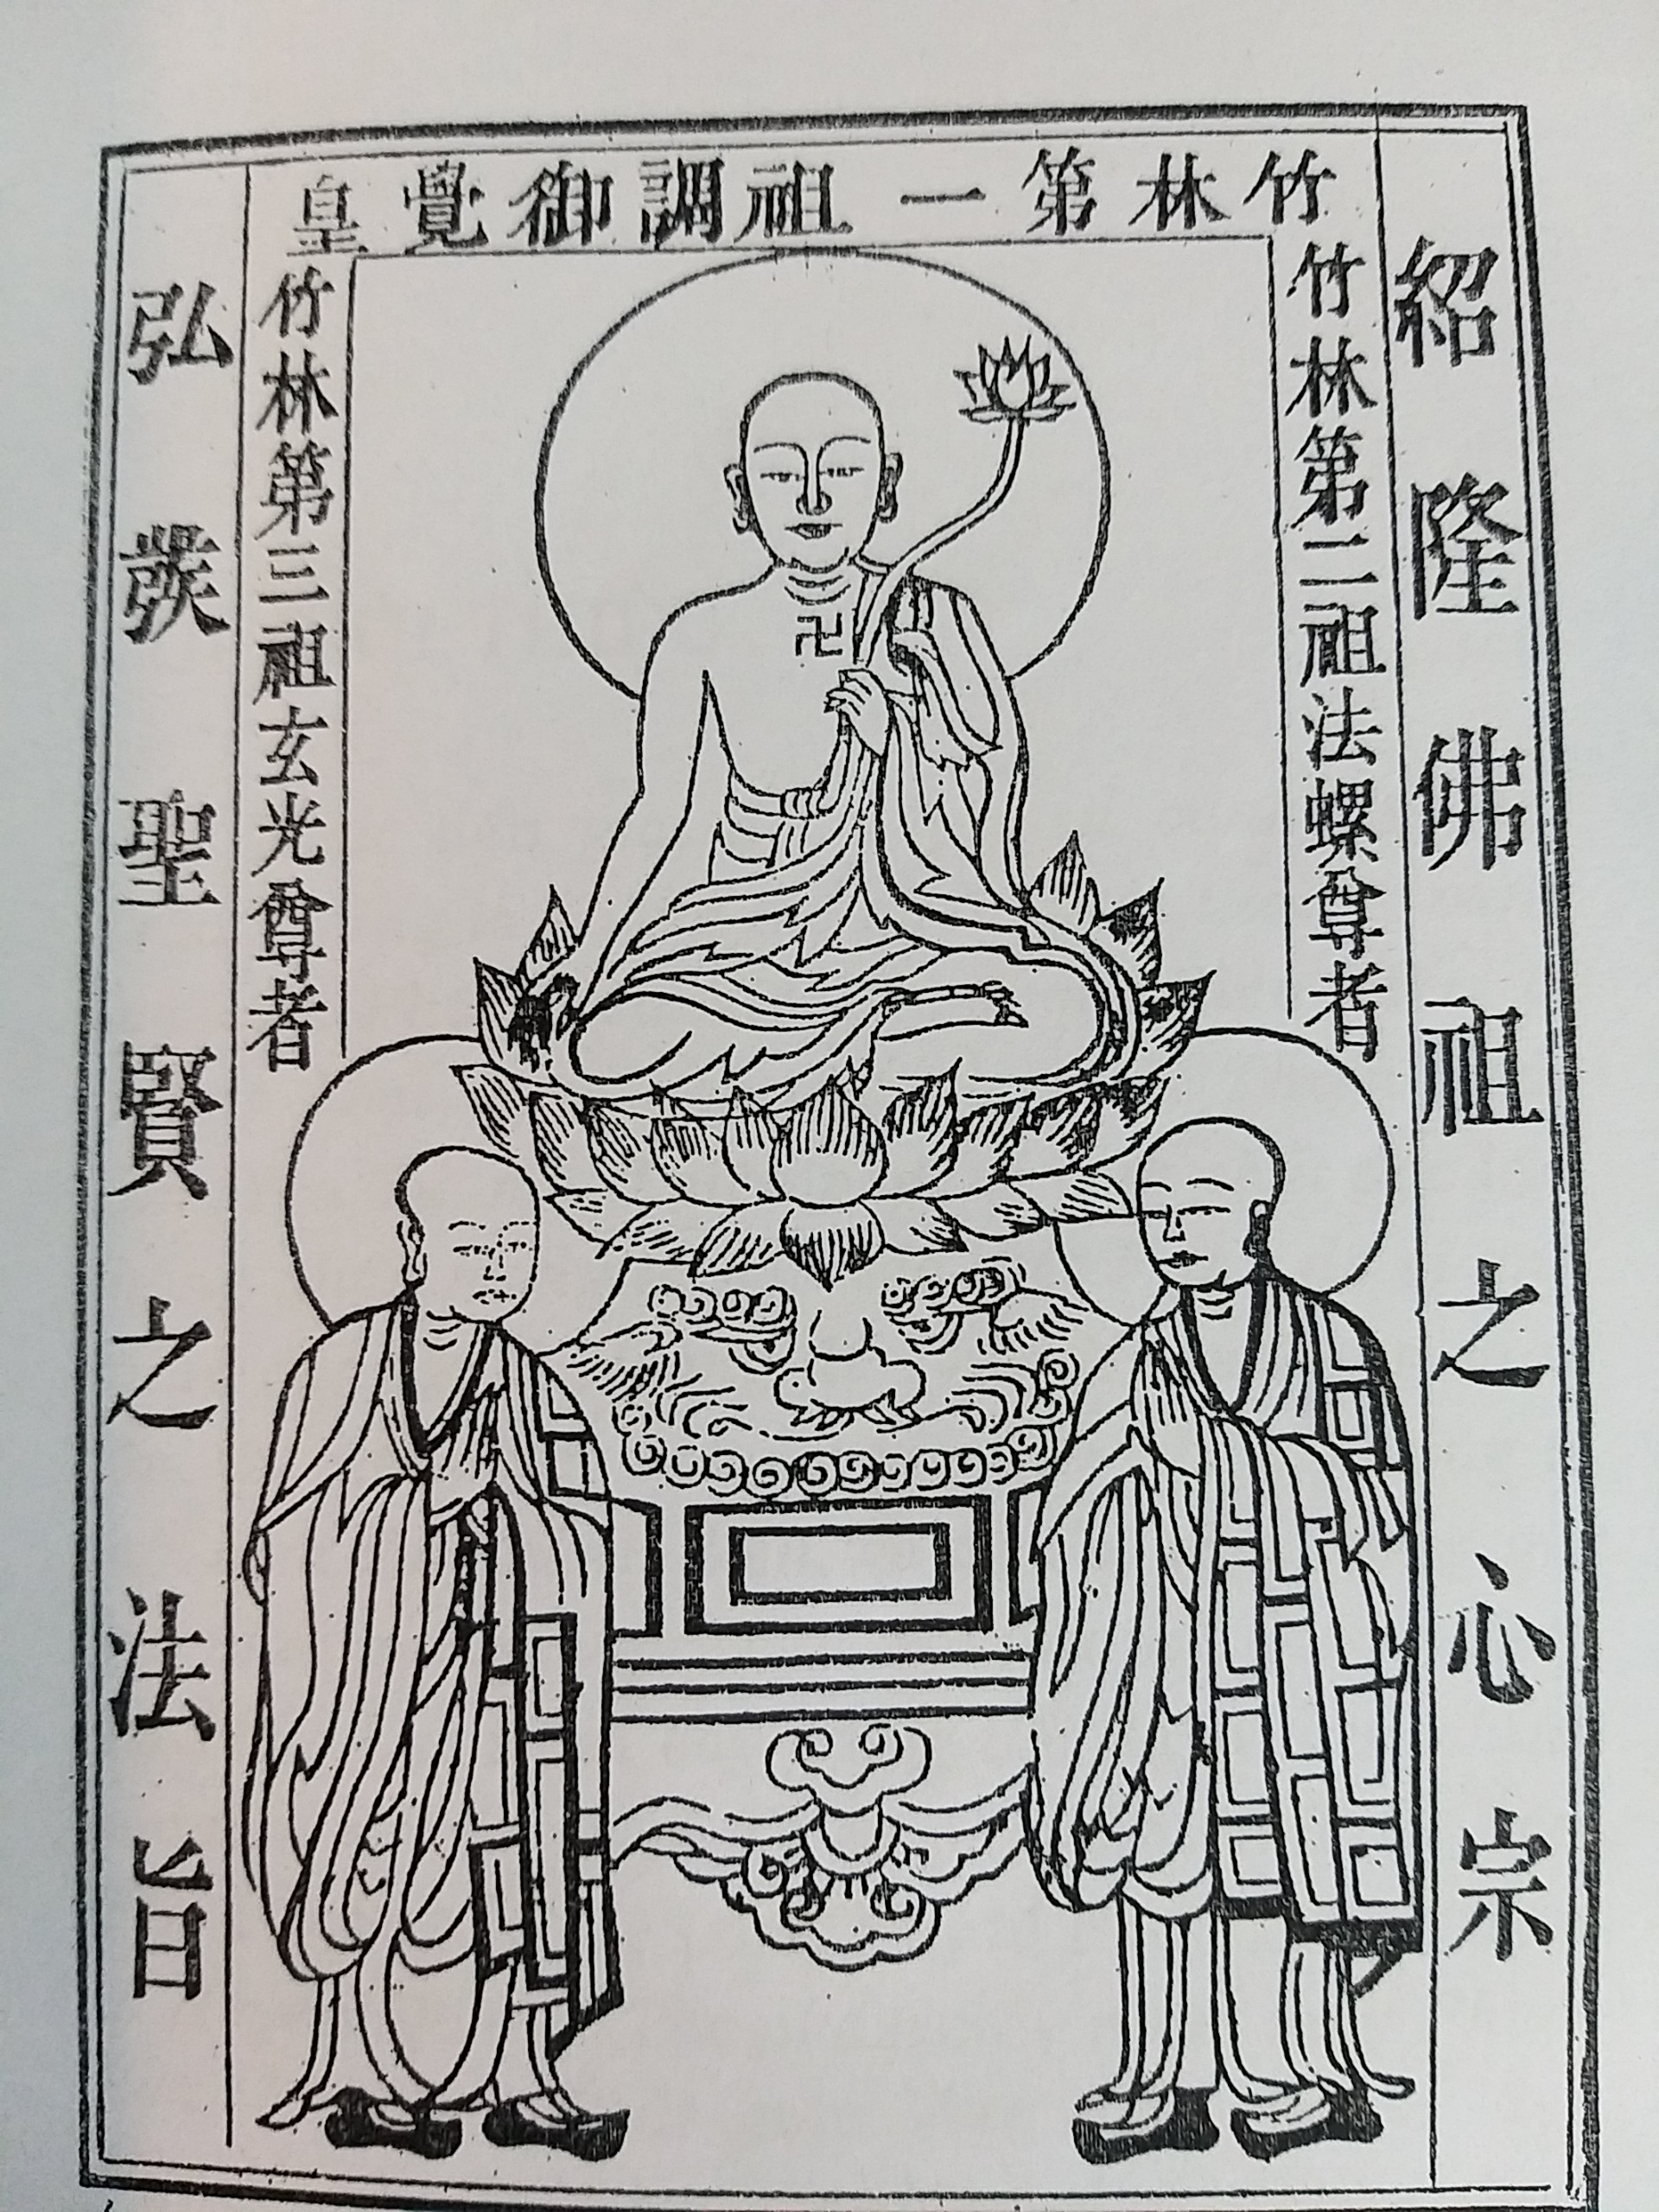 竹林第一祖調御覺皇
紹隆佛祖之心宗
竹林第二祖法螺尊者
竹林第三祖玄光尊者
弘發聖賢之法旨